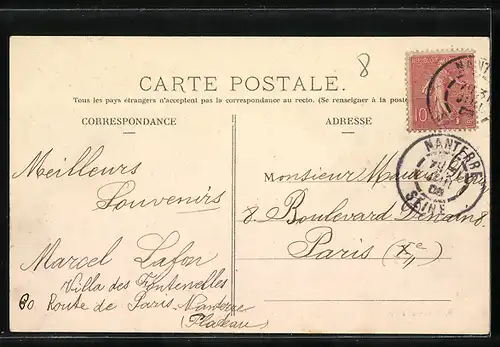 8
CARTE POSTALE.
Tous les pays étrangers n'acceptent pas la correspondance au recto. (Se renseigner à la poste
CORRESPONDANCE
ADRESSE
10
NANTERRE
SEINE
Meilleurs
Souvenirs
Marcel Lafon
Villa des Fontenelles
60 Route de Paris Nanterre
(Plateau)
Monsieur
8. Boulevard Denain 8.
Paris (Xe)